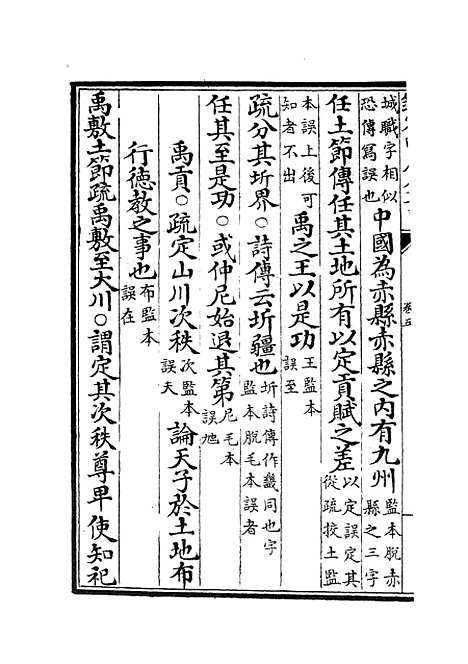 城職字相似恐傳寫誤也中國為赤縣赤縣之內有九州監本脫赤縣之三字
任土節傳任其土地所有以定貢賦之差以定誤定其從疏挍土監
本誤上後可知者不出禹之王以是功王監本誤至
疏分其圻界○詩傳云圻疆也圻詩傳作畿同也字監本脫毛本誤者
任其至是功○或仲尼始退其第尼毛本誤
禹貢○疏定山川次秩次監本誤天論天子於土地布
行德教之事也布監本誤在
禹敷土節疏禹敷至大川○謂定其次秩尊卑使知祀